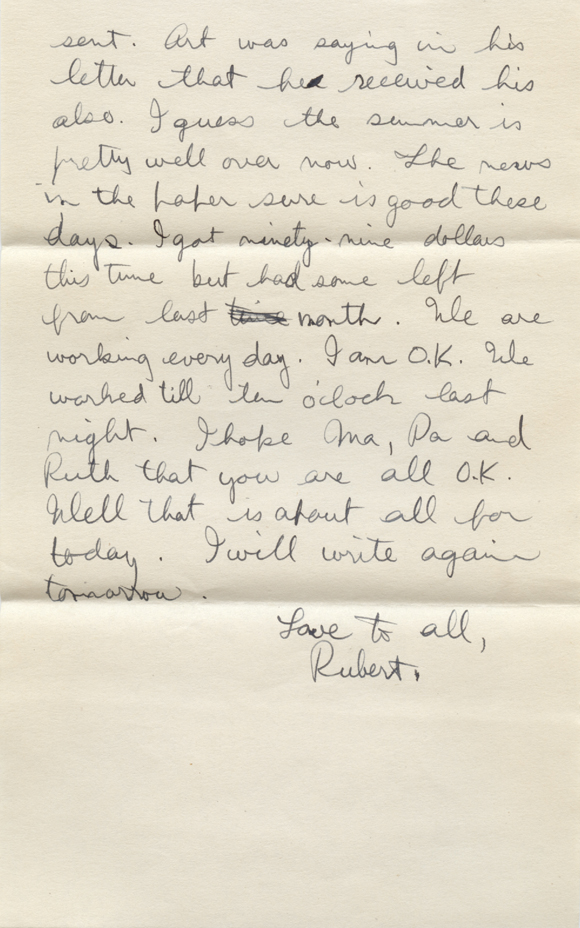 sent. Art was saying in his
letter that he received his
also. I guess the summer is
pretty well over now. The news
in the paper sure is good these
days. I got ninety-nine dollars
this time but had some left
from last time month. We are
working every day. I am O.K. We
worked till ten o'clock last
night. I hope Ma, Pa and
Ruth that you are all O.K.
Well that is about all for
today. I will write again
tomorrow.
Love to all,
Rubert.